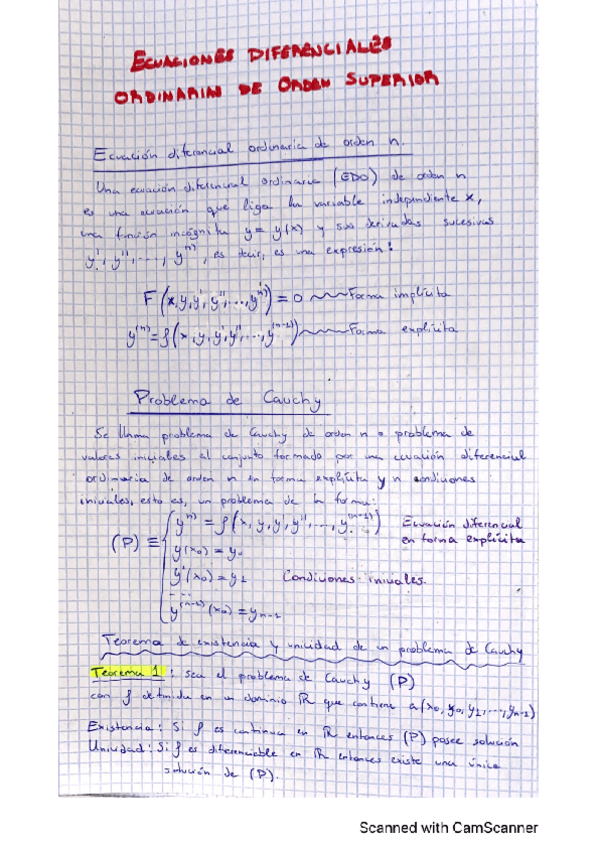 ECUACIONES DIFERENCIALES
ORDINARIAS DE ORDEN SUPERIOR
Ecuación diferencial ordinaria de orden n.
Una ecuación diferencial ordinaria (EDO) de orden n
es una ecuación que liga la variable independiente x,
una función incógnita y = y(x) y sus derivadas sucesivas
y', y'', ..., y^n), es decir, es una expresión:
F(x,y,y',y'',...,y^n)) = 0 Forma implícita
y^(n) = f(x,y,y',y'',...,y^(n-1)) Forma explícita
Problema de Cauchy
Se llama problema de Cauchy de orden n o problema de
valores iniciales al conjunto formado por una ecuación diferencial
ordinaria de orden n en forma explícita y n condiciones
iniciales, esto es, un problema de la forma:
(P) ≡ { y^n) = f(x, y, y', y'', ..., y^(n-1)) Ecuación diferencial
en forma explícita
y(x0) = y0
y'(x0) = y1 Condiciones iniciales.
.....
y^(n-1)(x0) = yn-1
Teorema de existencia y unicidad de un problema de Cauchy
Teorema 1: sea el problema de Cauchy (P)
con f definida en un dominio R que contiene a (x0, y0, y1, ..., yn-1)
Existencia: Si f es continua en R entonces (P) posee solución
Unicidad: Si f es diferenciable en R entonces existe una única
solución de (P).
Scanned with CamScanner